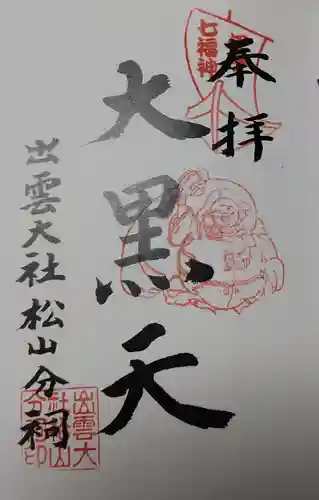 奉拝
七福神
大黒天
出雲大社松山分祠
出雲大
社松山
分祠之印